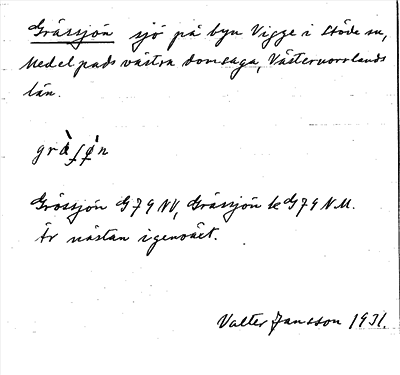 Gråssjön sjö på byn Vigge i Stöde sn,
Medelpads västra domsaga, Västernorrlands
län.
Gråssjön G79NV, Gråssjön sk G79 N.M.
Är nästan igenväxt.
Valter Jansson 1931.